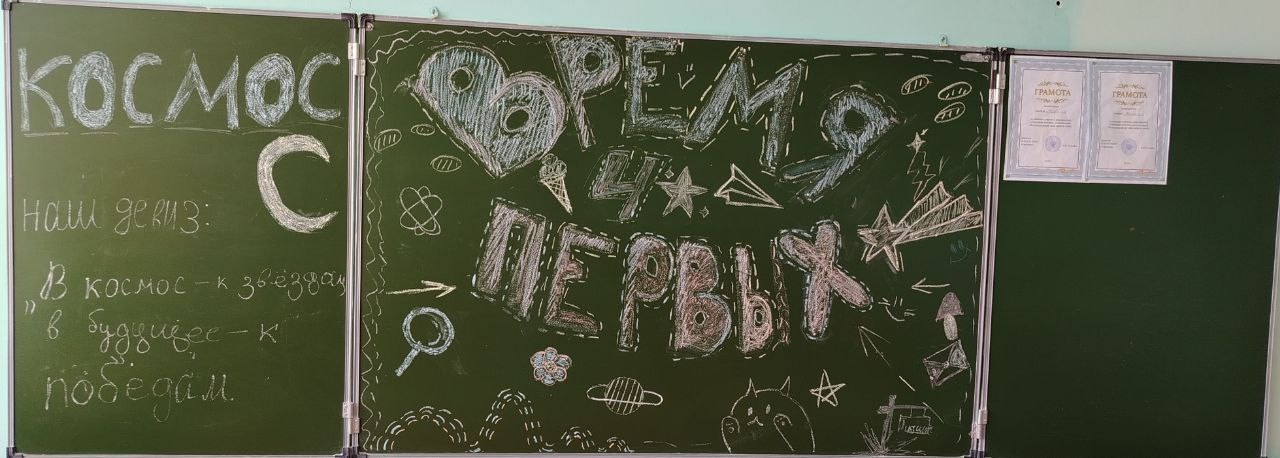 КОСМОС
наш девиз:
"В космос – к звёздам
в будущее – к
победам.
ВРЕМЯ
Ч
ПЕРВЫХ
ГРАМОТА
ГРАМОТА